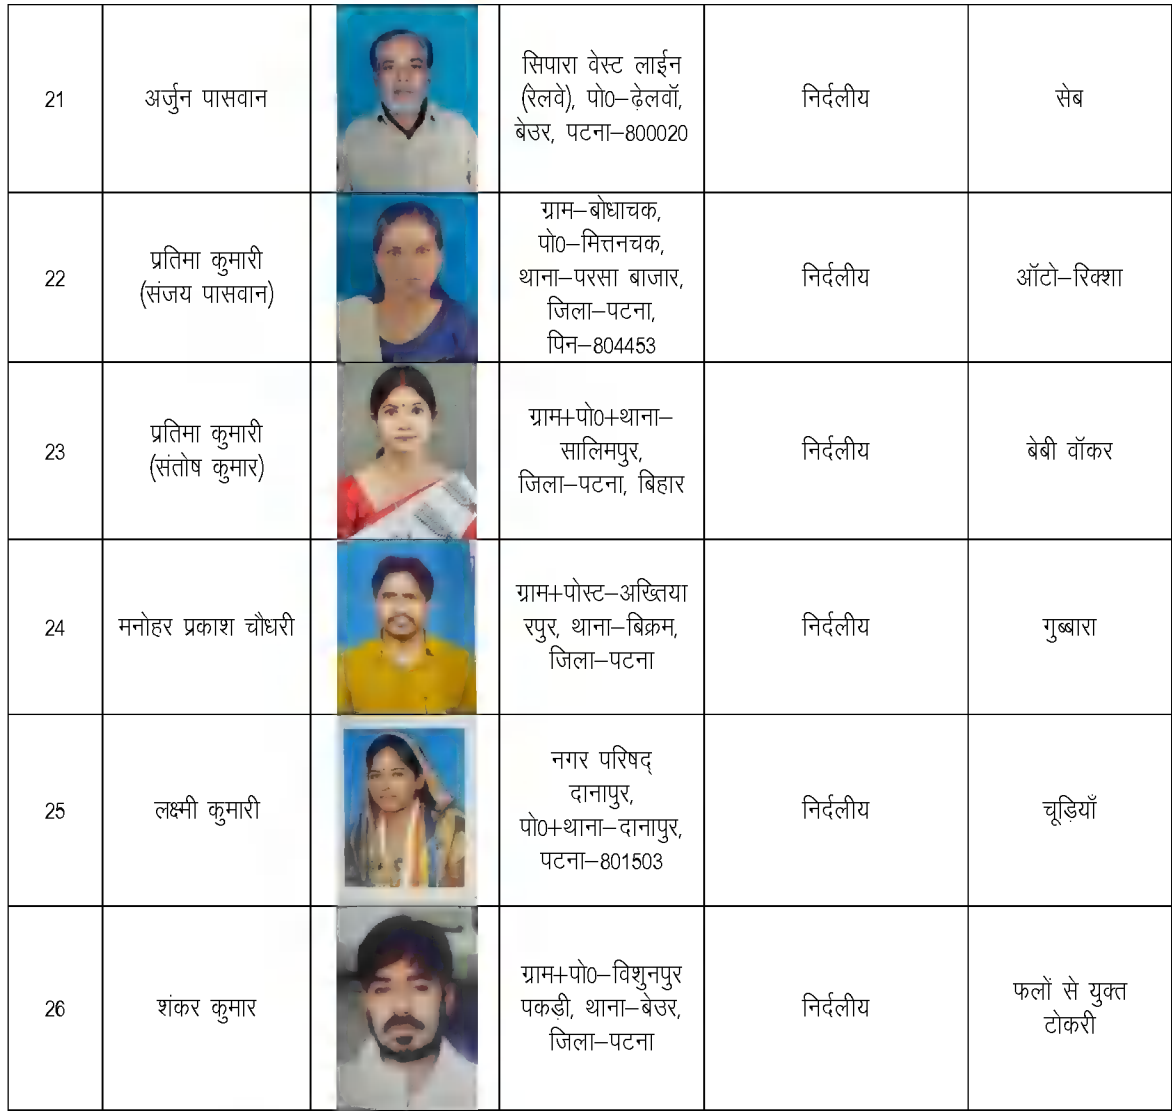 21
अर्जुन पासवान
सिपारा वेस्ट लाईन
(रेलवे), पो0–ढ़ेलवॉ,
बेउर, पटना–800020
निर्दलीय
सेब
22
प्रतिमा कुमारी
(संजय पासवान)
ग्राम–बोधाचक,
पो0–मित्तनचक,
थाना–परसा बाजार,
जिला–पटना,
पिन–804453
निर्दलीय
ऑटो–रिक्शा
23
प्रतिमा कुमारी
(संतोष कुमार)
ग्राम+पो0+थाना–
सालिमपुर,
जिला–पटना, बिहार
निर्दलीय
बेबी वॉकर
24
मनोहर प्रकाश चौधरी
ग्राम+पोस्ट–अख्तिया
रपुर, थाना–बिक्रम,
जिला–पटना
निर्दलीय
गुब्बारा
25
लक्ष्मी कुमारी
नगर परिषद्
दानापुर,
पो0+थाना–दानापुर,
पटना–801503
निर्दलीय
चूड़ियाँ
26
शंकर कुमार
ग्राम+पो0–विशुनपुर
पकड़ी, थाना–बेउर,
जिला–पटना
निर्दलीय
फलों से युक्त
टोकरी